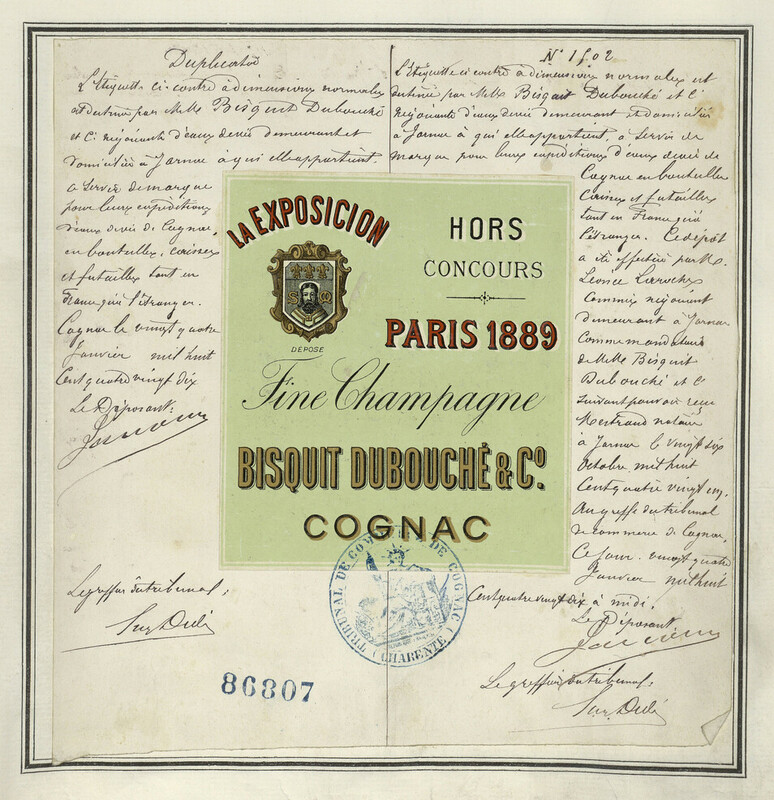 Duplicata
L'Etiquette ci-contre à dimensions normales
est destinée par M.lle Bisquit Dubouché
et Cie négociants d'eaux de vie demeurant et
domiciliés à Jarnac à qui elle appartient
à servir de marque
pour leurs expéditions
d'eaux de vie de Cognac,
en bouteilles, caisses
et futailles tant en
France qu'à l'étranger.
Cognac le vingt quatre
Janvier mil huit
Cent quatre vingt dix
Le Déposant:
Le greffier du tribunal,
86807
LA EXPOSICION
HORS
CONCOURS
PARIS 1889
DEPOSE
Fine Champagne
BISQUIT DUBOUCHÉ & Co.
COGNAC
TRIBUNAL DE COMMERCE DE COGNAC
(CHARENTE)
N° 1502
L'Etiquette ci contre à dimensions normales est
destinée par Bisquit Dubouché et Cie
négociants d'eaux de vie demeurant et domiciliés
à Jarnac à qui elle appartient, à servir de
marque pour leurs expéditions d'eaux de vie de
Cognac en bouteilles
Caisses et futailles
tant en France qu'à
l'étranger. Ce dépôt
a été effectué par M.
Léonce
Commis négociant
demeurant à Jarnac
Comme mandataire
de Bisquit
Dubouché et Cie
suivant pouvoir reçu
notaire
à Jarnac le vingt six
Octobre mil huit
Cent quatre vingt un.
Au greffe du tribunal
de commerce de Cognac,
Ce jour vingt quatre
Janvier mil huit
Cent quatre vingt dix à midi.
Le Déposant
Le greffier du tribunal,